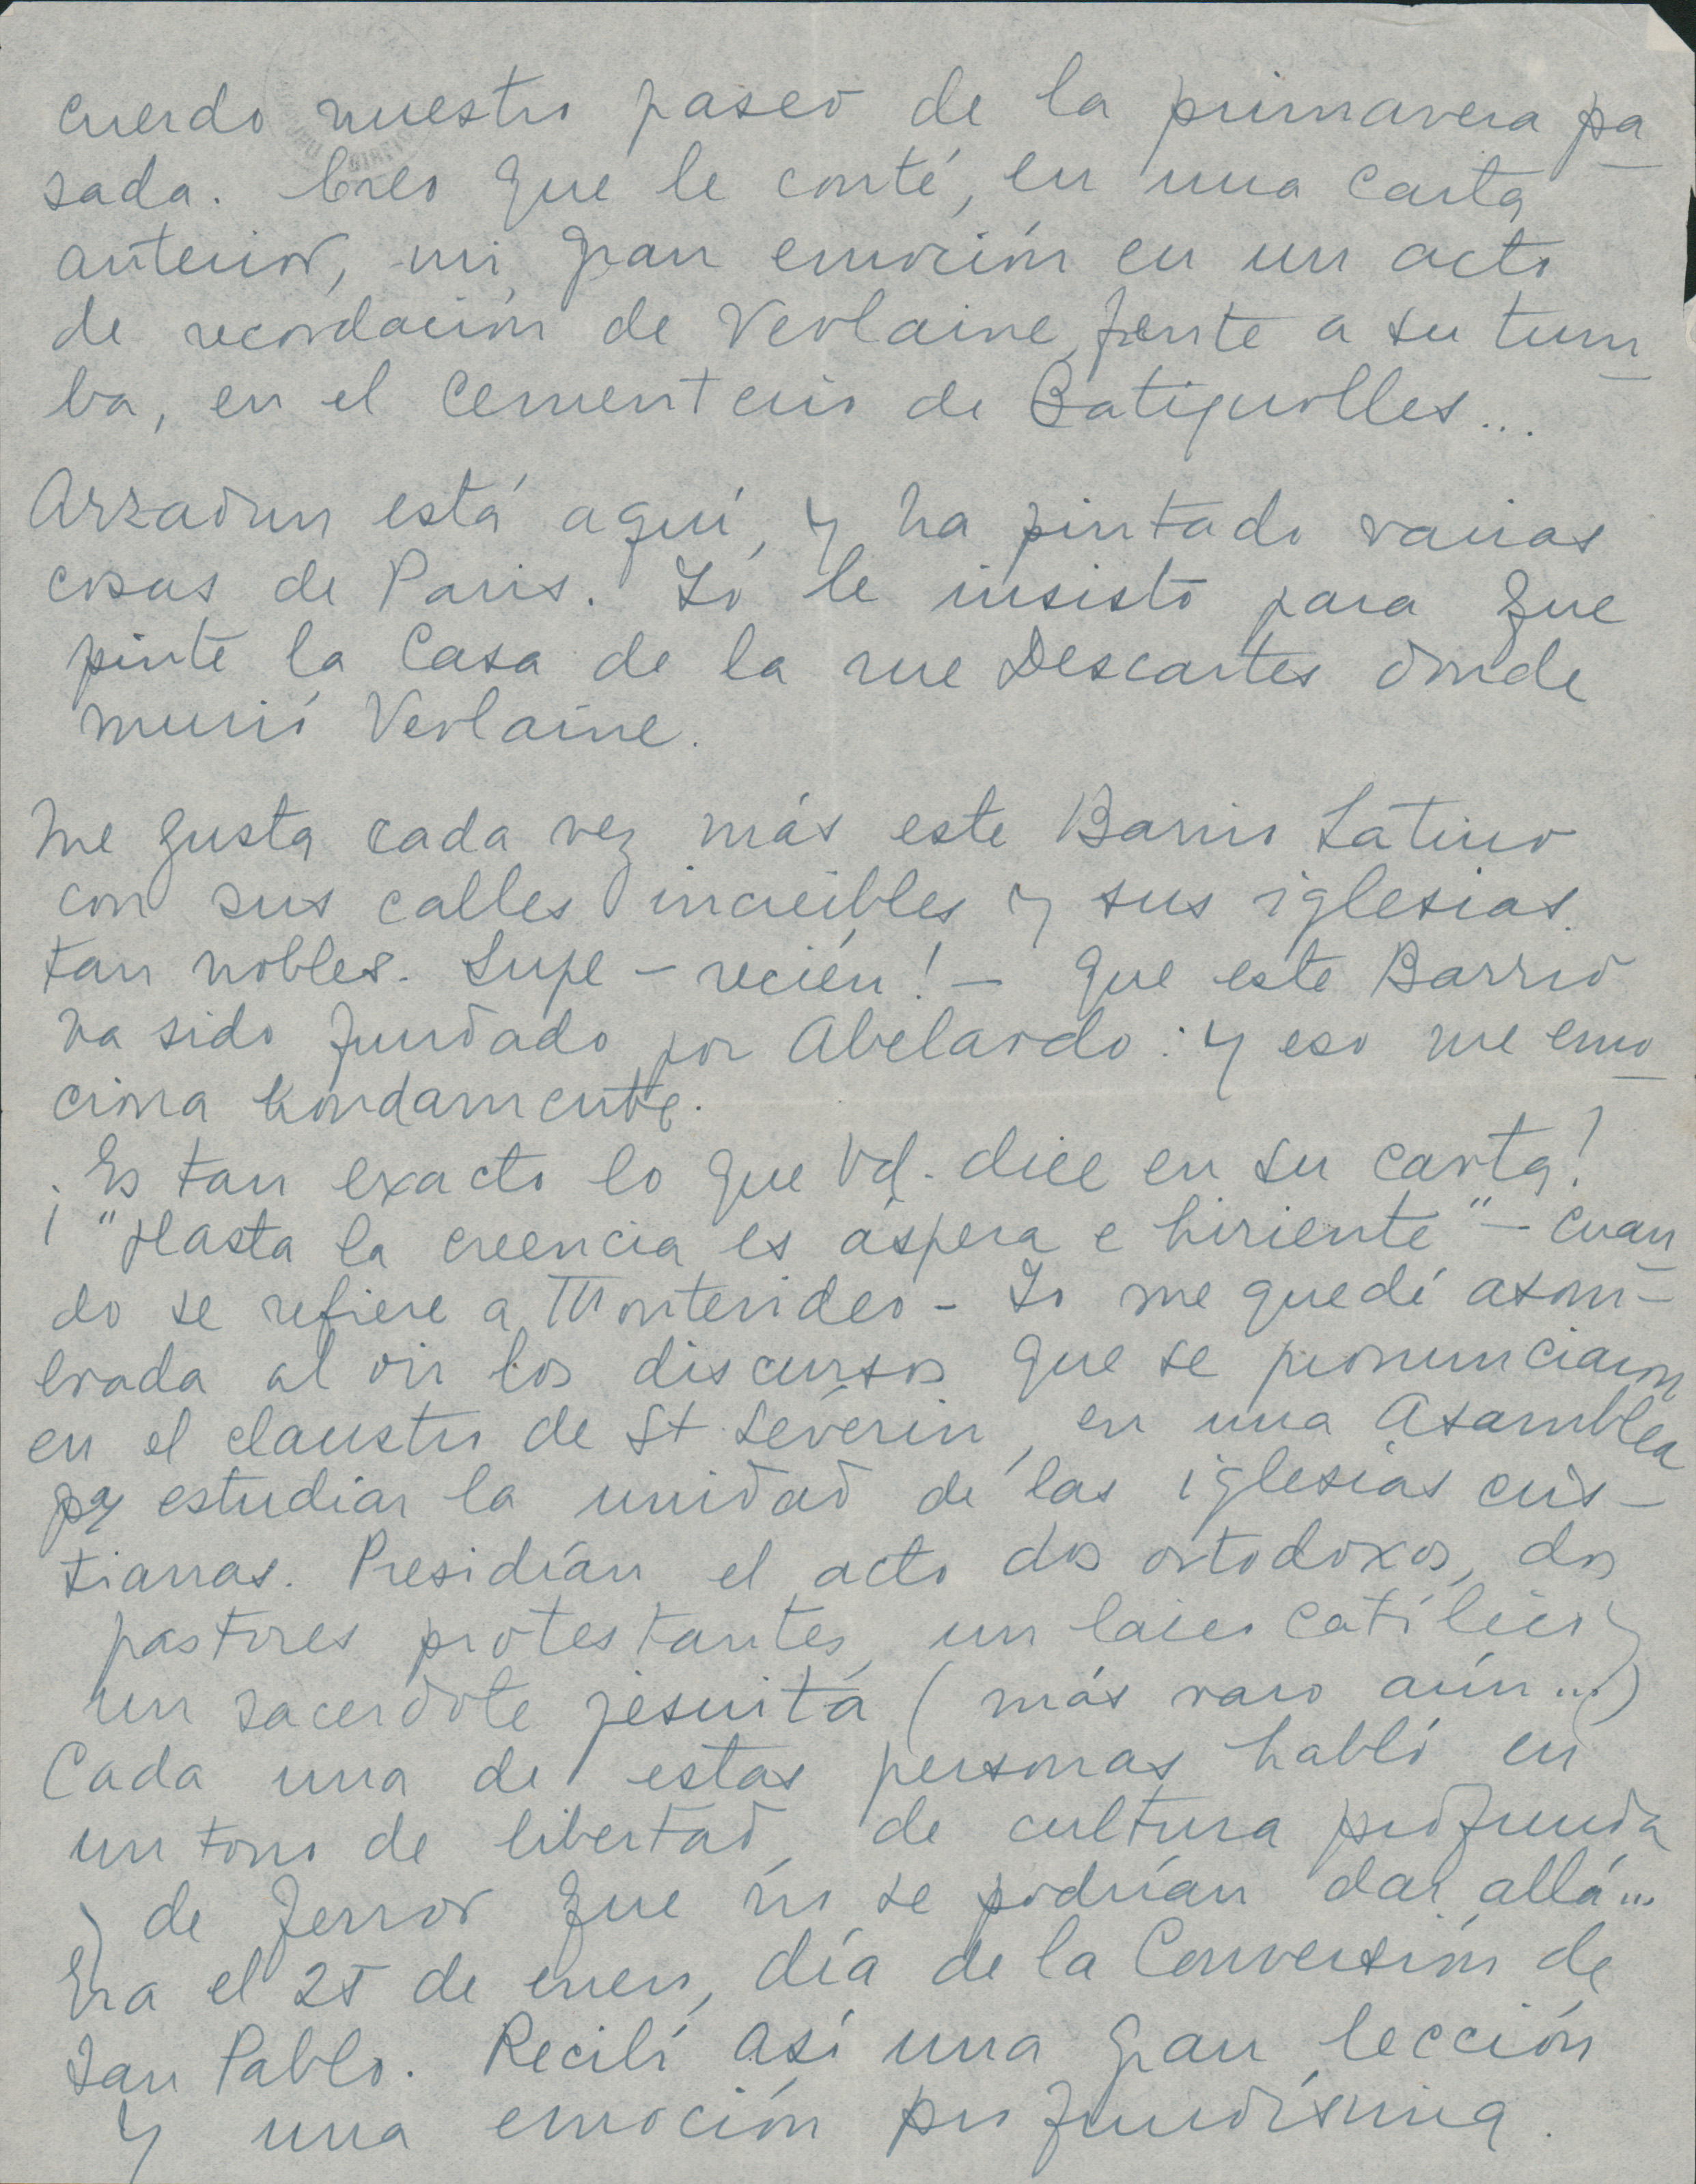 cuerdo nuestro paseo de la primavera pa
sada. Creo que le conté, en una carta
anterior, mi gran emoción en un acto
de recordación de Verlaine, frente a su tum
ba, en el Cementerio de Batignolles...
Arzadun está aquí, y ha pintado varias
cosas de Paris. Yo le insisto para que
pinte la Casa de la rue Descartes donde
murió Verlaine.
Me gusta cada vez más este Barrio Latino
con sus calles increíbles y sus iglesias
tan nobles. Supe - recién! - que este Barrio
ha sido fundado por Abelardo: y eso me emo
ciona hondamente.
¡Es tan exacto lo que Vd. dice en su carta!
¡"Hasta la creencia es áspera e hiriente" - cuan
do se refiere a Montevideo - Yo me quedé asom-
brada al oir los discursos que se pronunciaron
en el claustro de St Séverin, en una Asamblea
pa estudiar la unidad de las iglesias cris-
tianas. Presidían el acto dos ortodoxos, dos
pastores protestantes, un laico católico y
un sacerdote jesuita (más raro aún...)
Cada una de estas personas habló en
un tono de libertad, de cultura profunda
y de fervor que no se podrían dar allá...
Era el 25 de enero, día de la Conversión de
San Pablo. Recibí así una gran lección
y una emoción profundísima.